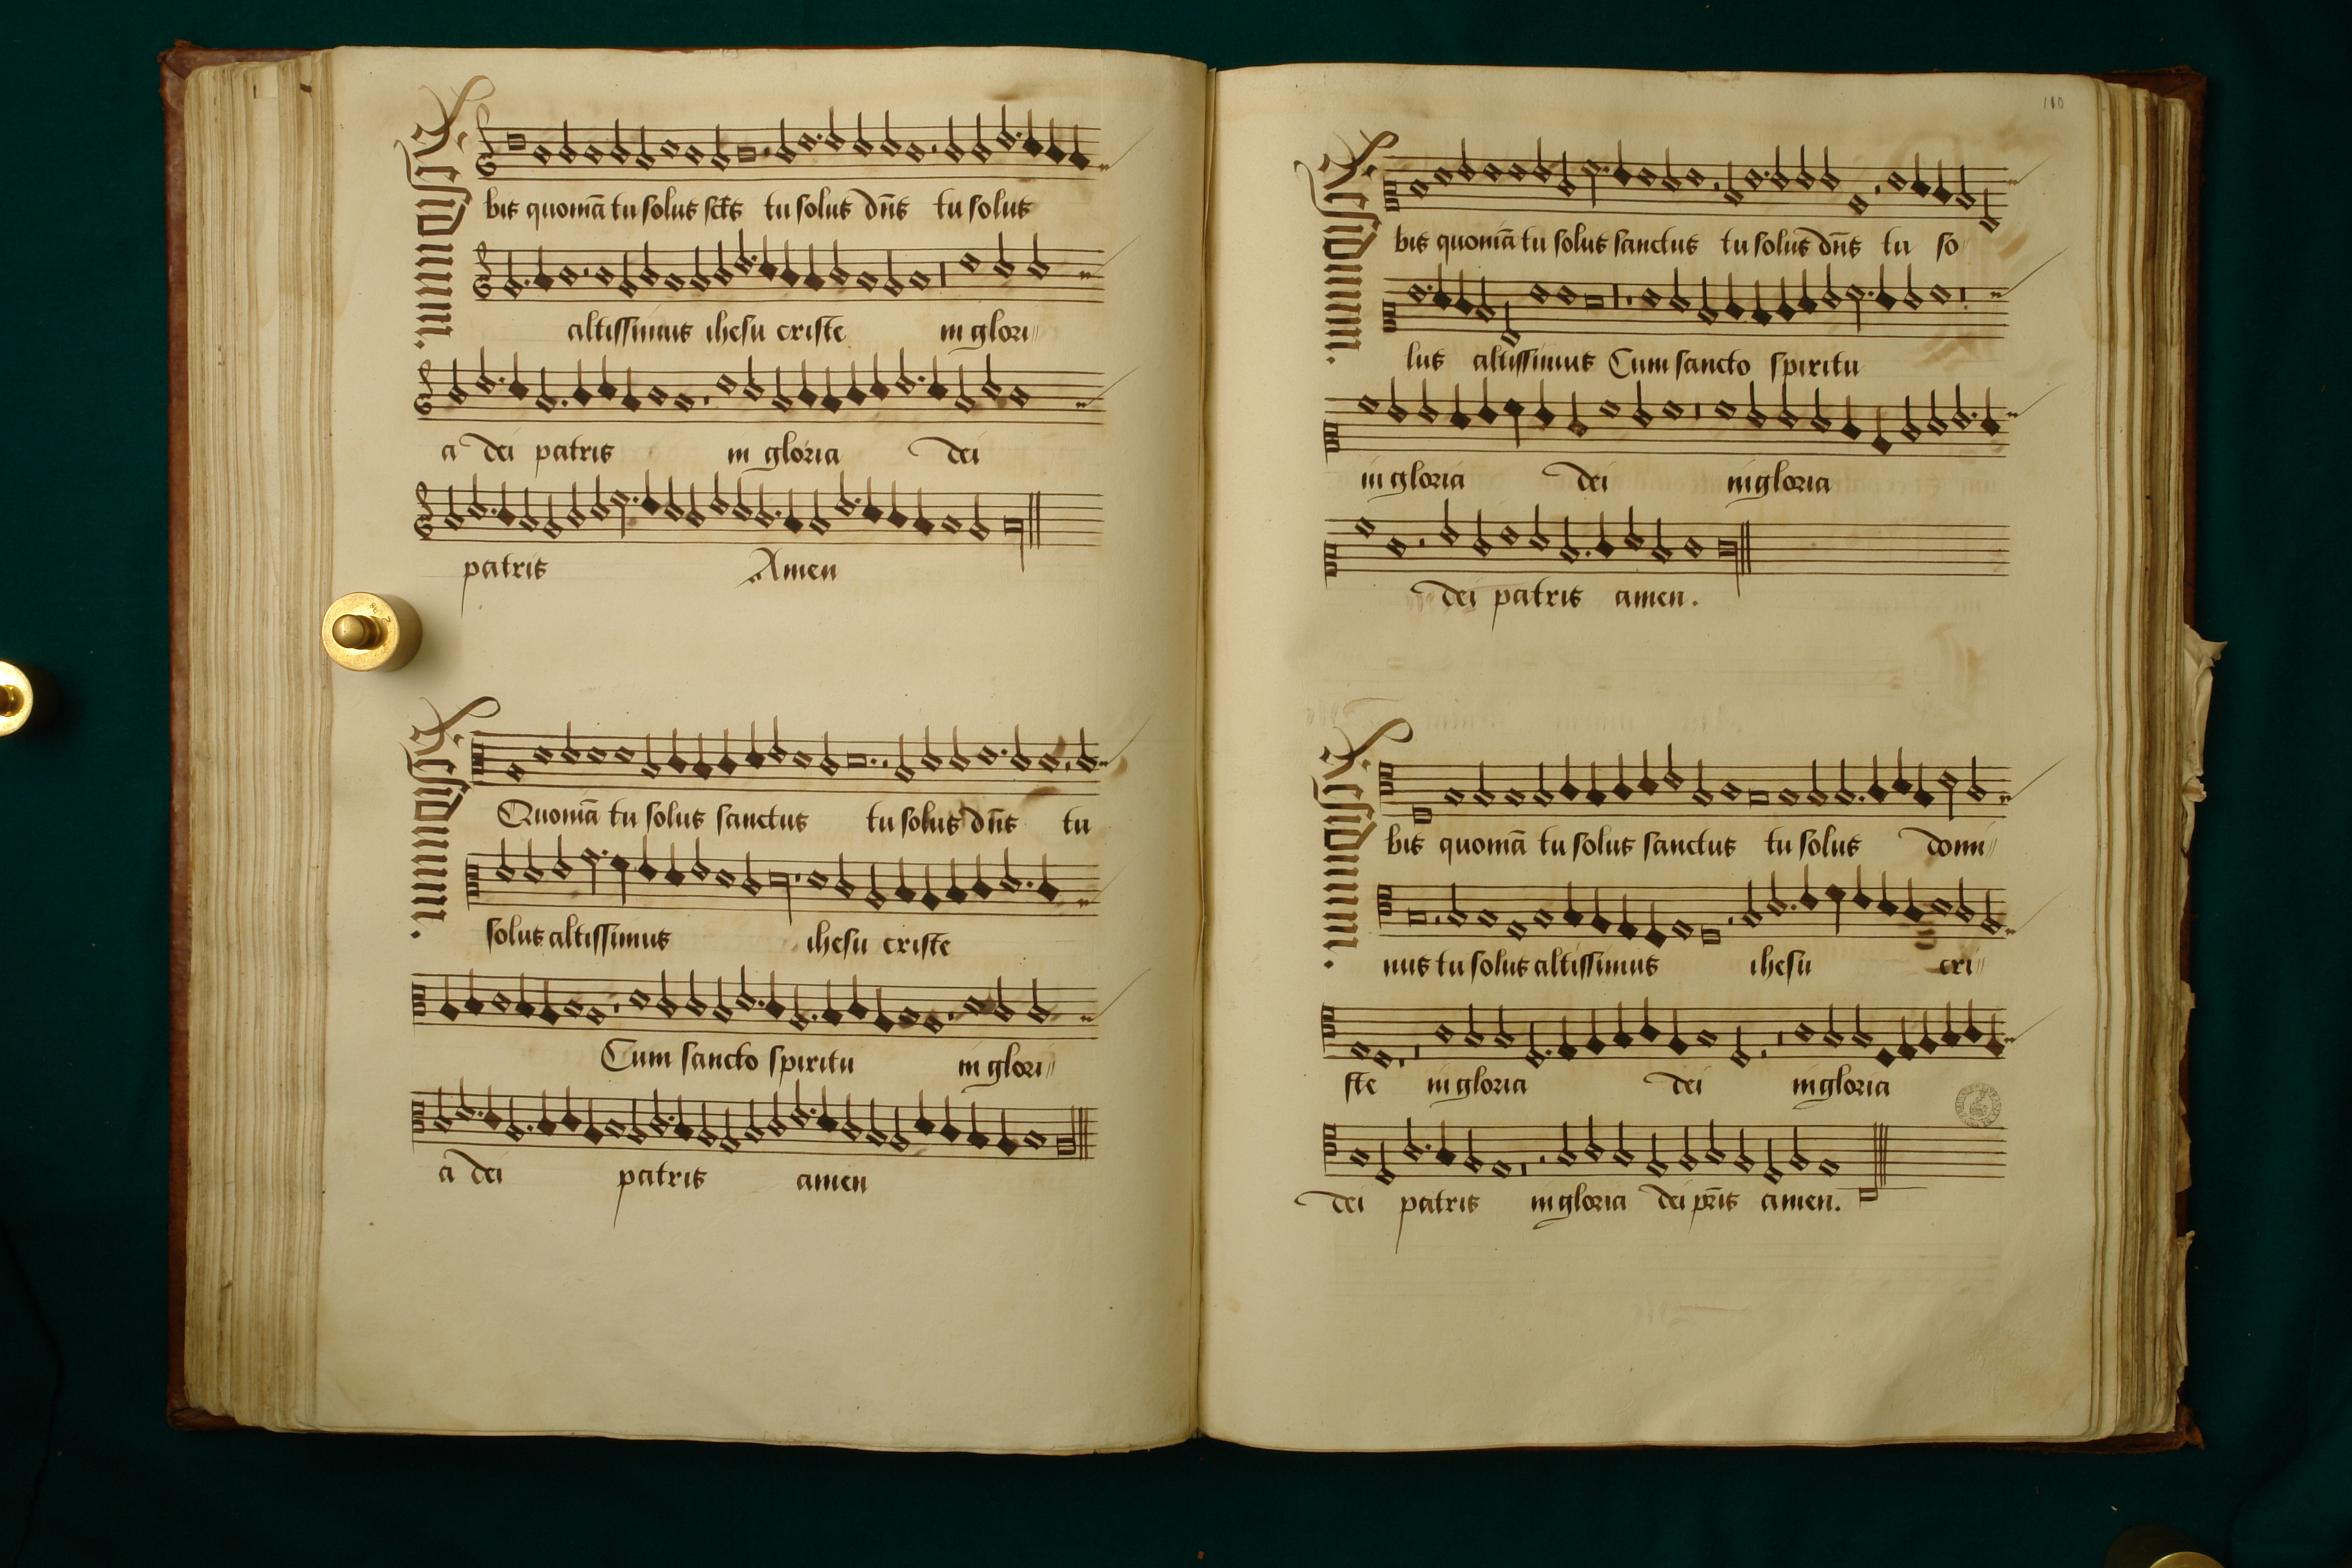 Residuum.
bis quoniā tu solus sc̄ts tu solus dn̄s tu solus
altissimus ihesu criste in glori
a dei patris in gloria dei
patris Amen
Residuum.
Quoniā tu solus sanctus tu solus dn̄s tu
solus altissimus ihesu criste
Cum sancto spiritu in glori
a dei patris amen
110
Residuum.
bis quoniā tu solus sanctus tu solus dn̄s tu so
lus altissimus Cum sancto spiritu
in gloria dei in gloria
dei patris amen.
Residuum.
bis quoniā tu solus sanctus tu solus domi
nus tu solus altissimus ihesu cri
ste in gloria dei in gloria
dei patris in gloria dei pr̄is amen.